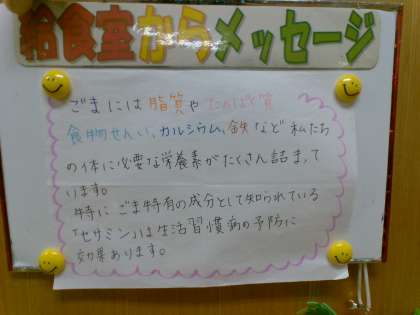 給食室からメッセージ
ごまには脂質やたんぱく質
食物せんい、カルシウム、鉄など私たち
の体に必要な栄養素がたくさん詰まって
います。
特にごま特有の成分として知られている
「セサミン」は生活習慣病の予防に
効果あります。